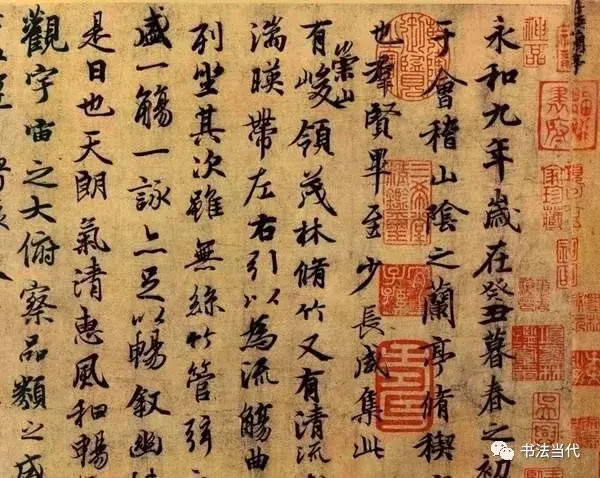 神品
永和九年歲在癸丑暮春之初
于會稽山陰之蘭亭脩稧
也羣賢畢至少長咸集此
有崇山峻領茂林脩竹又有清流
湍暎帶左右引以為流觴曲
列坐其次雖無絲竹管弦
盛一觴一詠亦足以暢敘幽
是日也天朗氣清惠風和暢
觀宇宙之大俯察品類之盛
书法当代